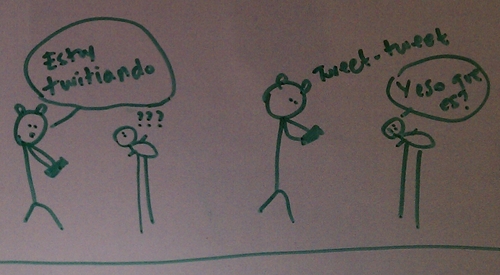 Estoy
twitiando
???
Tweet-tweet
Y eso que
es?